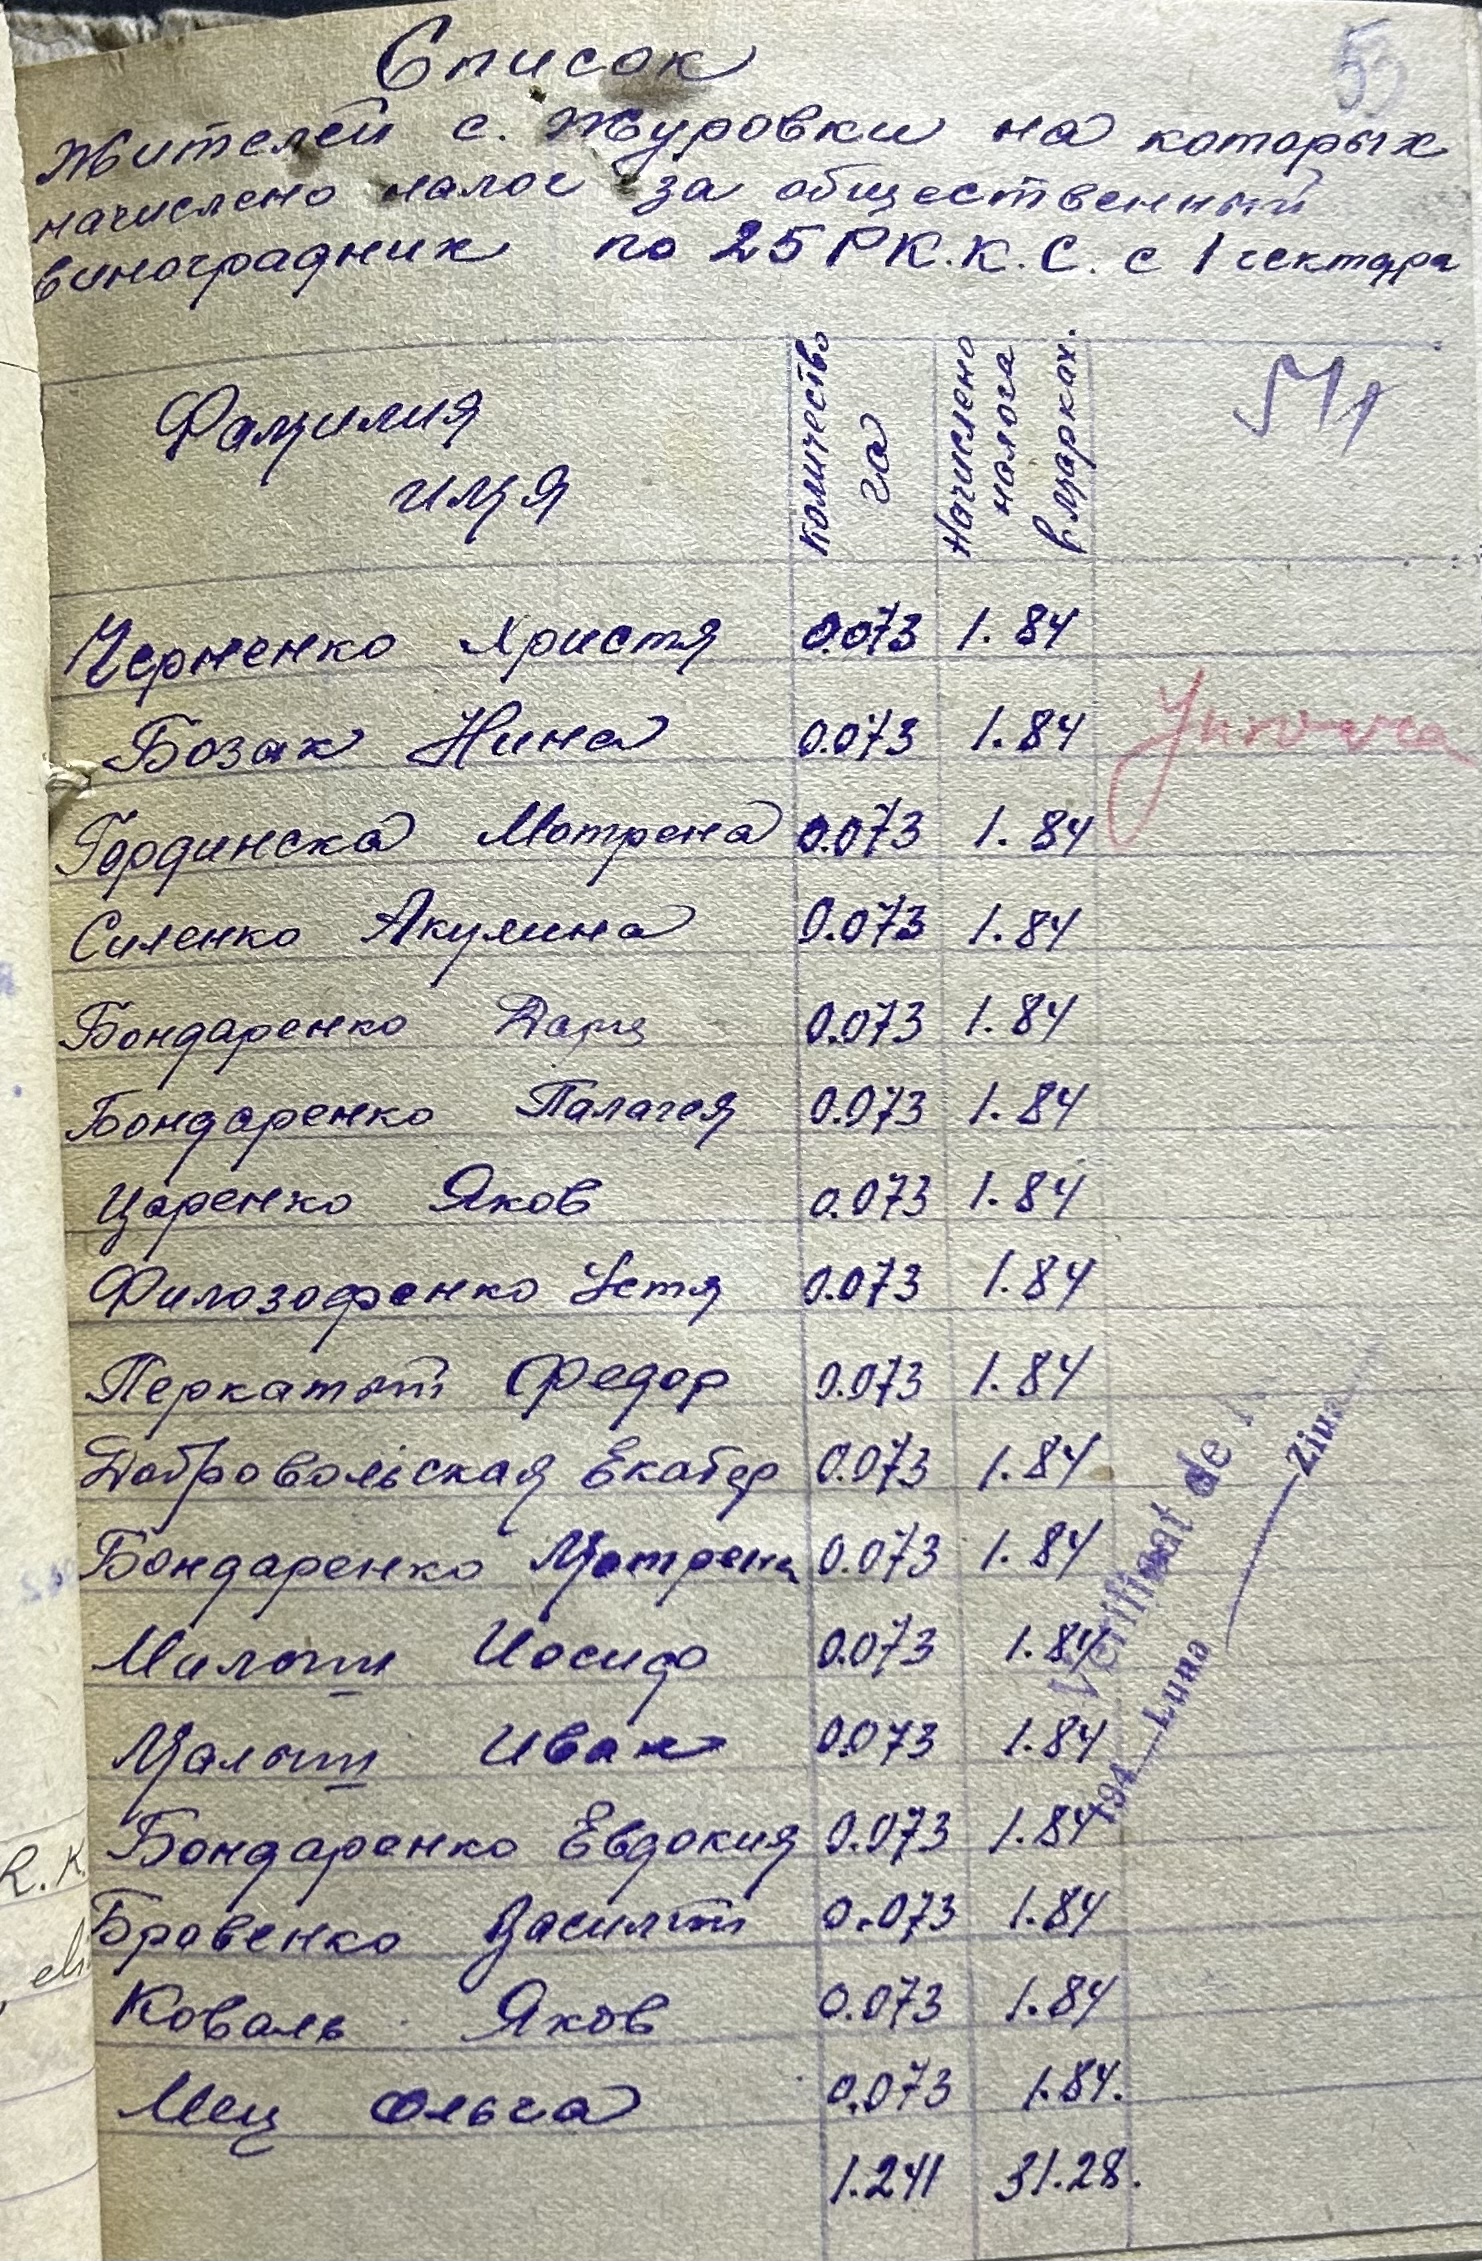 Список
жителей с. Журовки на которых
начислено налог за общественный
виноградник по 25 РК.К.С. с 1 гектара
Фамилия имя | количество га | Начислено налога в марках.
Черненко Христя 0.073 1.84
Бозак Нина 0.073 1.84
Гординска Мотрена 0.073 1.84
Силенко Акулина 0.073 1.84
Бондаренко Даря 0.073 1.84
Бондаренко Палагея 0.073 1.84
Царенко Яков 0.073 1.84
Филозофенко Устя 0.073 1.84
Перкатый Федор 0.073 1.84
Добровольская Екатер 0.073 1.84
Бондаренко Мотрена 0.073 1.84
Малый Иосиф 0.073 1.84
Малый Иван 0.073 1.84
Бондаренко Евдокия 0.073 1.84
Бровенко Василий 0.073 1.84
Коваль Яков 0.073 1.84
Мец Ольга 0.073 1.84.
1.241 31.28.
Verificat de
194 Luna Ziua
R. K.